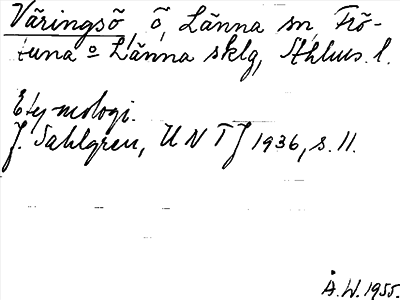 Väringsö, ö, Länna sn, Frö-
tuna o Länna sklg, Sthlms l.
Etymologi.
J. Sahlgren, UNTJ 1936, s. 11.
Å.W. 1955.